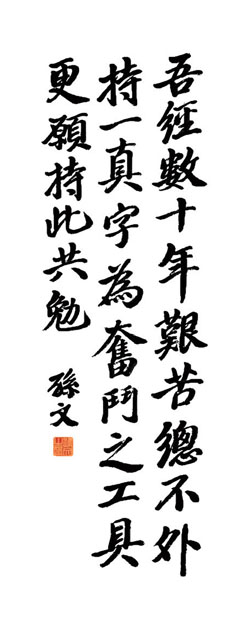 吾經數十年艱苦總不外
持一真字為奮鬥之工具
更願持此共勉
孫文